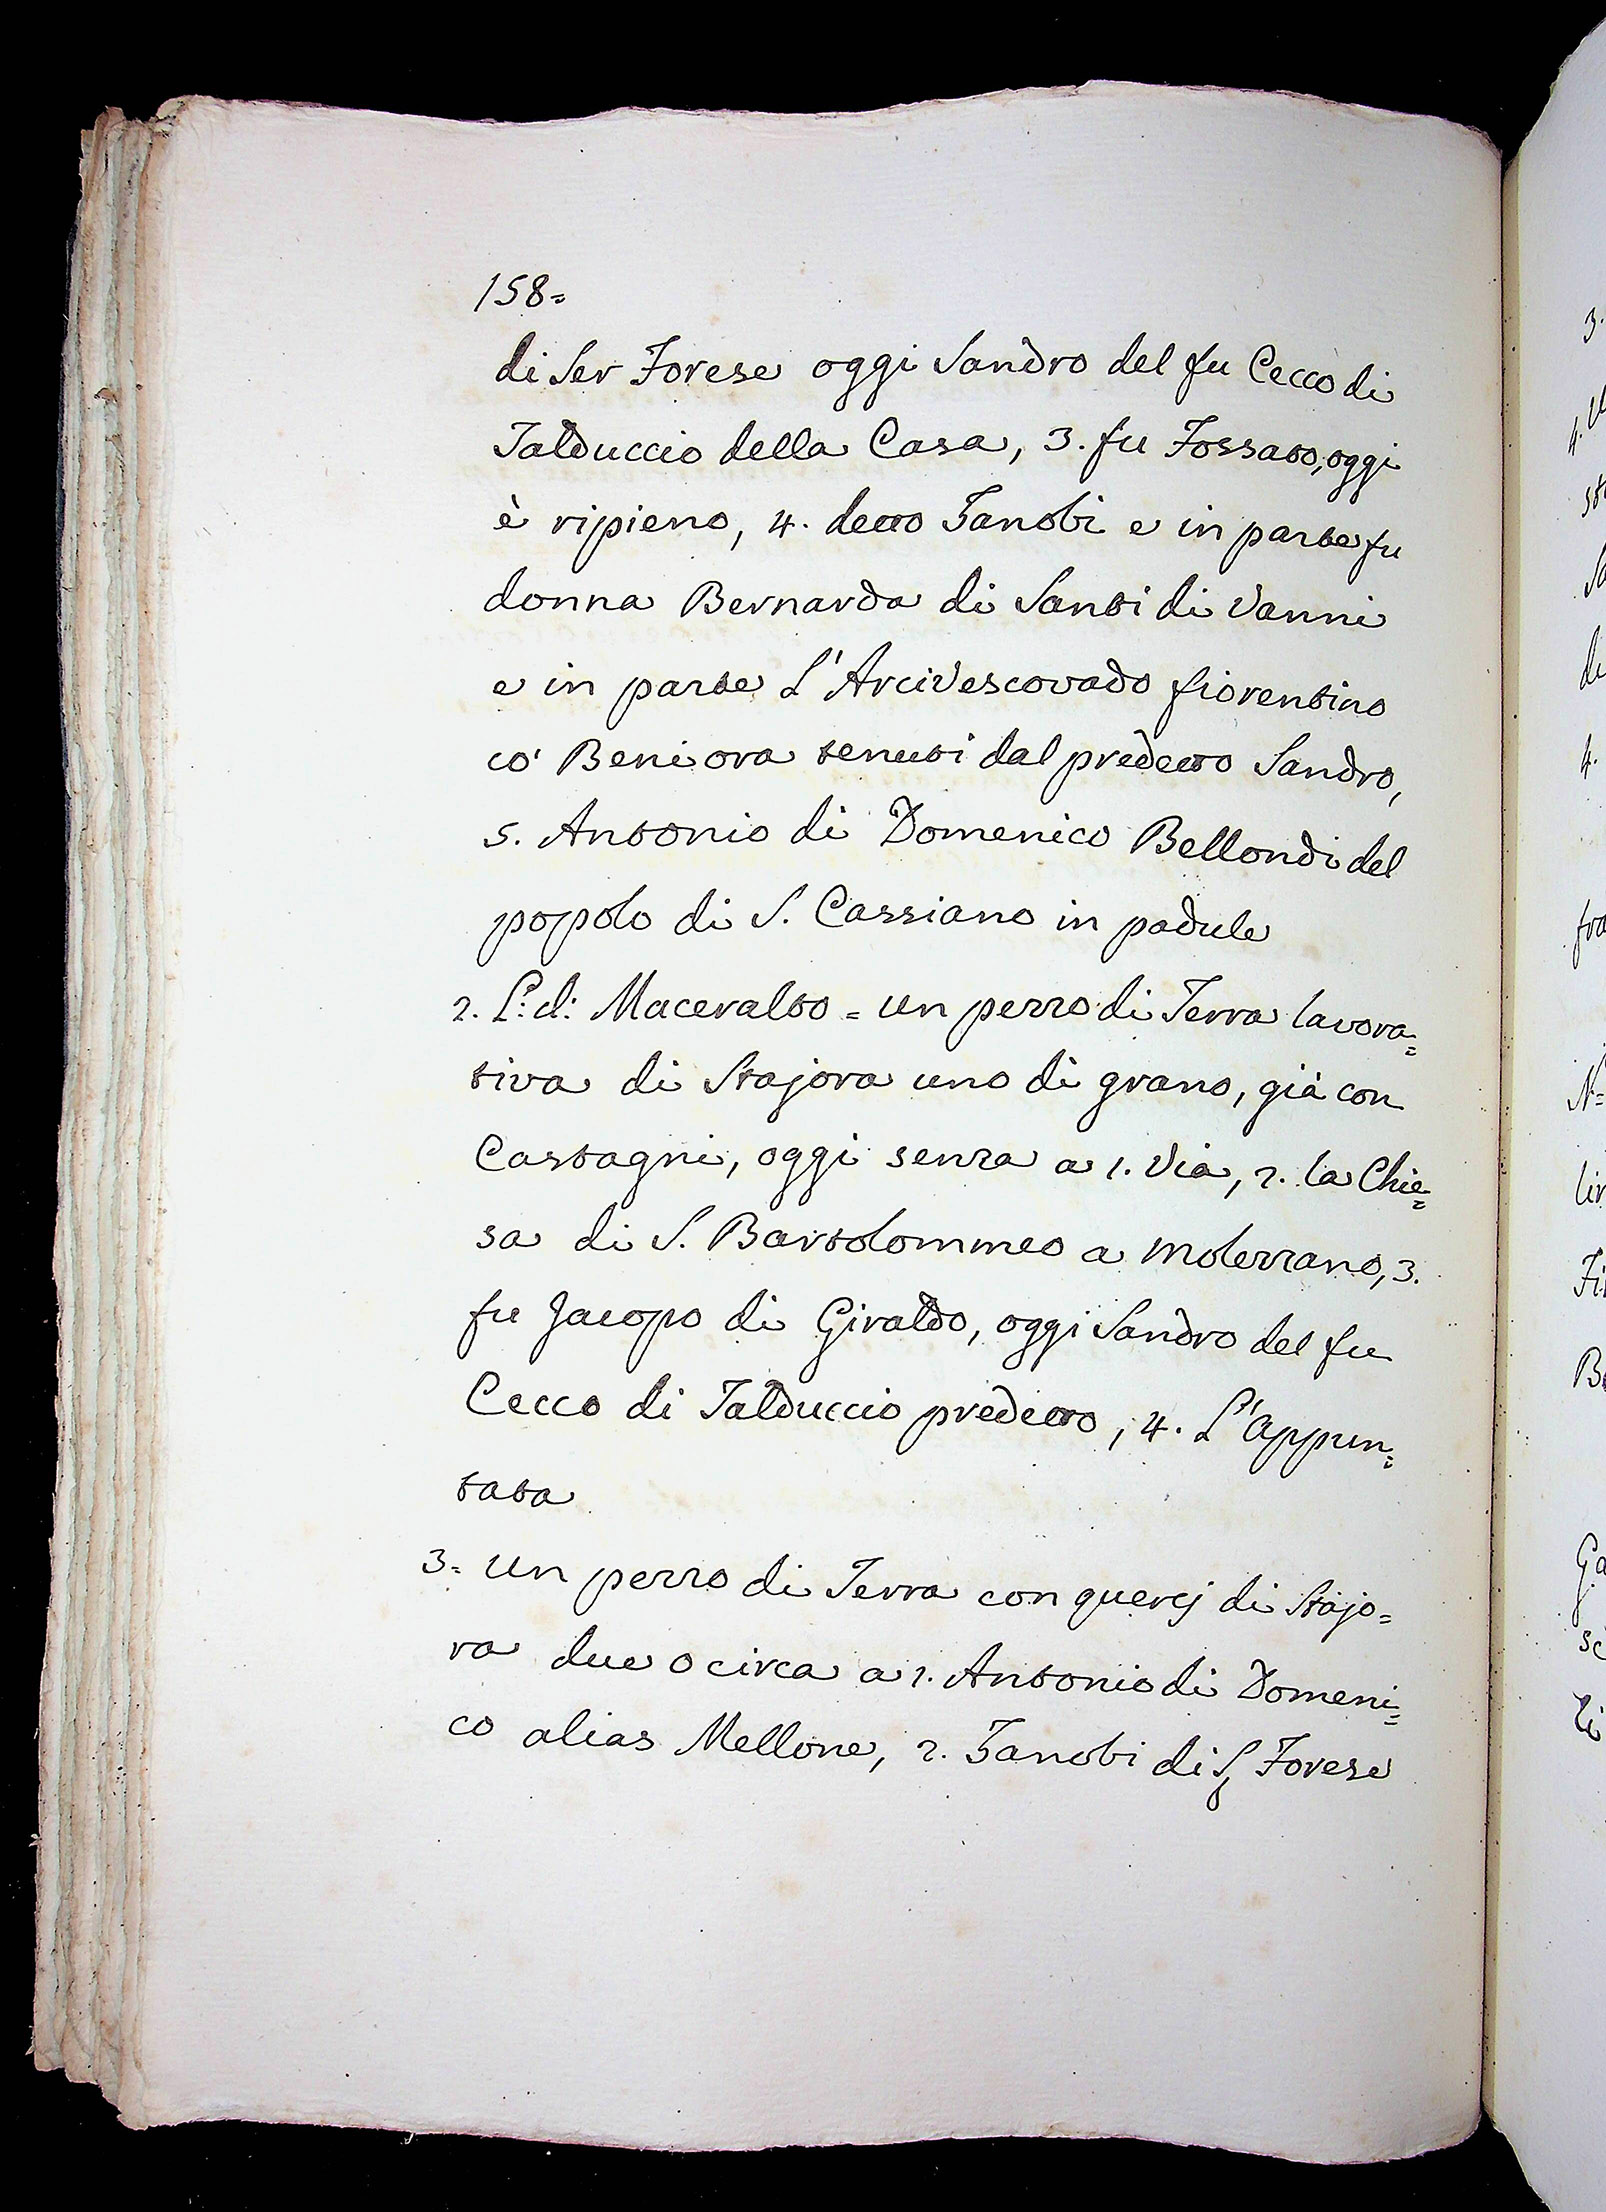 158=
di Ser Forese oggi Sandro del fu Cecco di
Talduccio della Casa, 3. fu Fossato, oggi
è ripieno, 4. detto Zanobi e in parte fu
donna Bernarda di Santi di Vanni
e in parte L'Arcivescovado fiorentino
co' Beni ora tenuti dal predetto Sandro,
5. Antonio di Domenico Bellondi del
popolo di S. Cassiano in padule
2. L: d: Maceralto = un pezzo di Terra lavora=
tiva di Stajora uno di grano, già con
Castagni, oggi senza a 1. Via, 2. la Chie=
sa di S. Bartolommeo a Molezzano, 3.
fu Jacopo di Giraldo, oggi Sandro del fu
Cecco di Talduccio predetto, 4. L'appun=
tata
3= un pezzo di Terra con quercj di Stajo=
ra due o circa a 1. Antonio di Domeni=
co alias Mellone, 2. Zanobi di S. Forese
3.
4.
4.
fra
N=